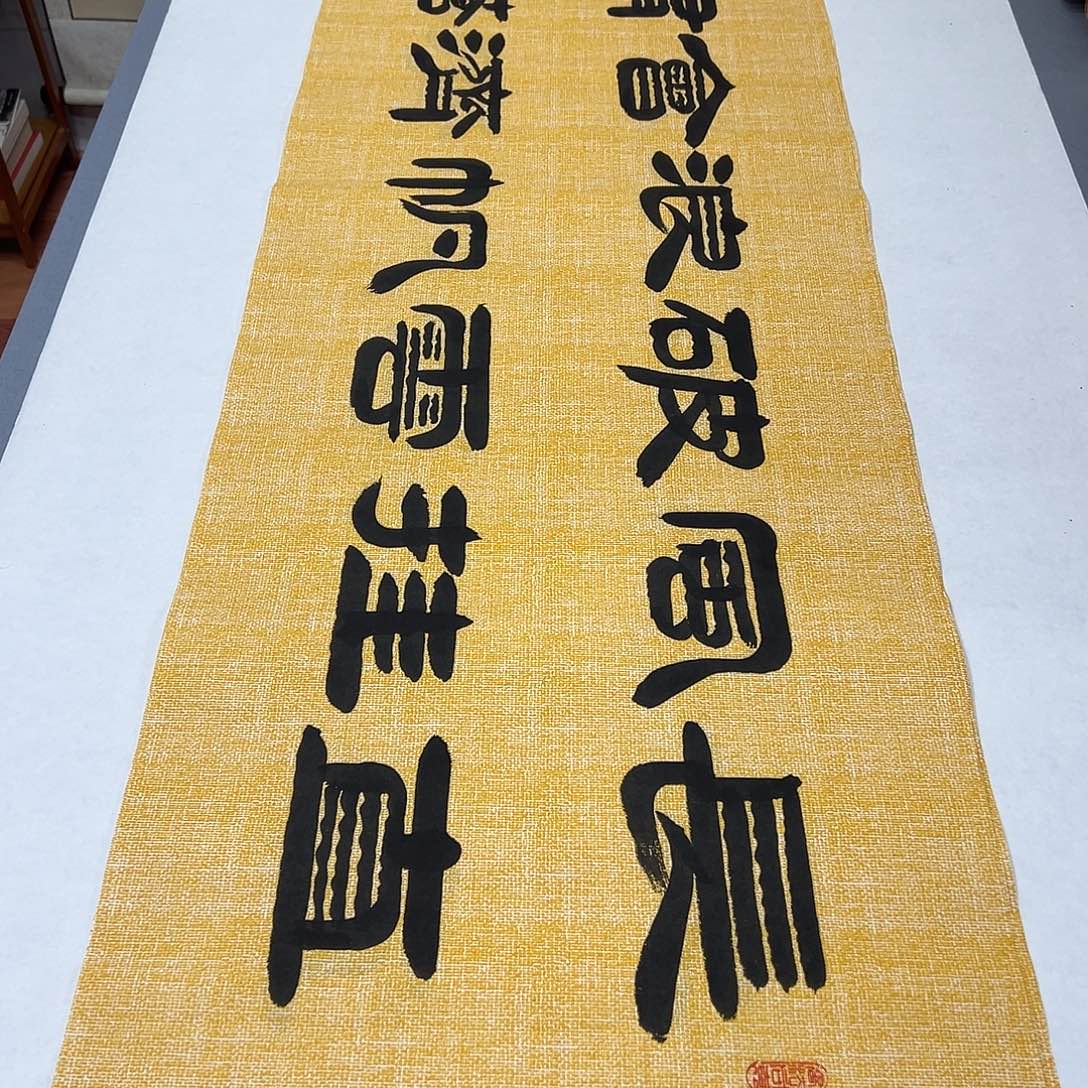 長風破浪會
直挂雲帆濟